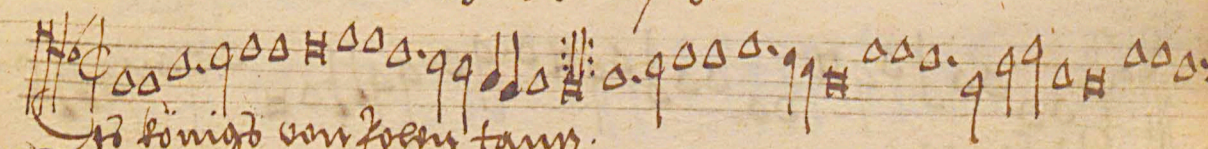 Es königs von Polen tantz.